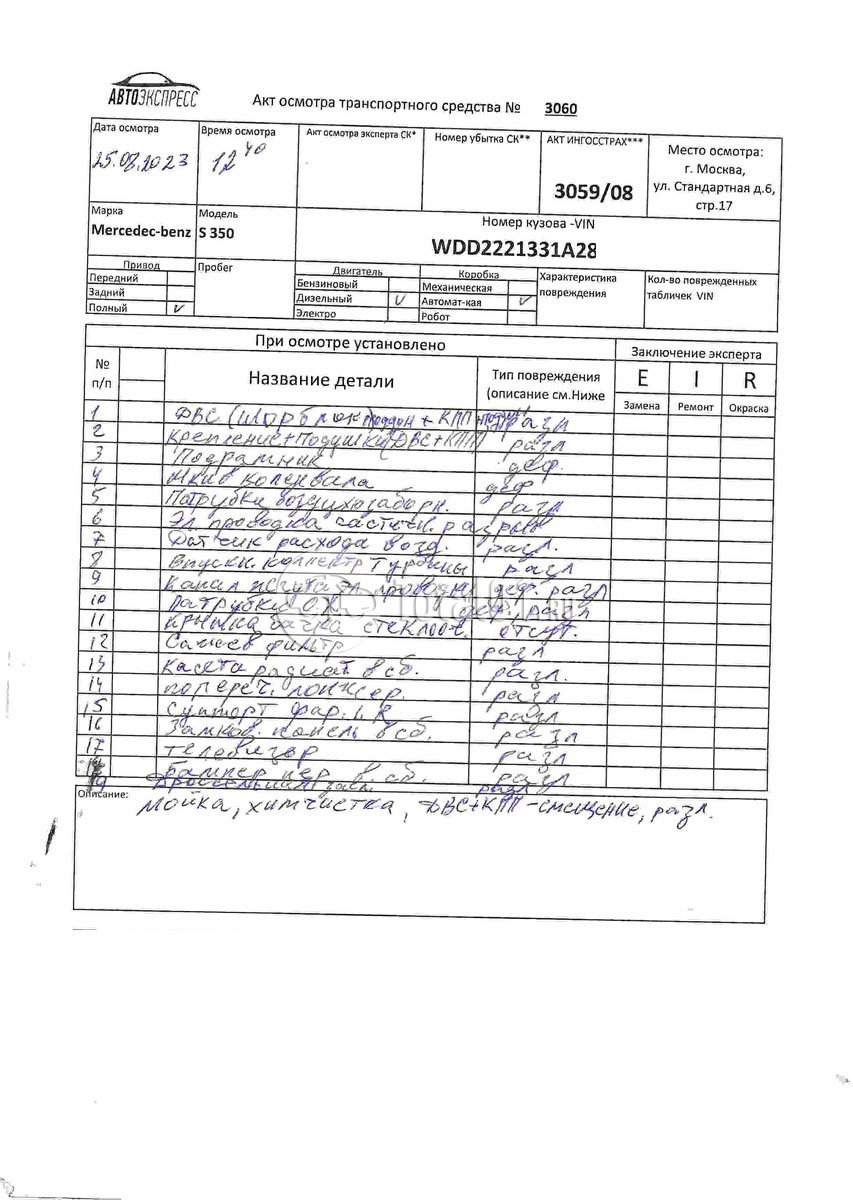 АВТОЭКСПРЕСС
Акт осмотра транспортного средства № 3060
Дата осмотра
25.08.2023
Время осмотра
12 40
Акт осмотра эксперта СК*
Номер убытка СК**
АКТ ИНГОССТРАХ***
3059/08
Место осмотра:
г. Москва,
ул. Стандартная д.6,
стр.17
Марка
Mercedec-benz
Модель
S 350
Номер кузова -VIN
WDD2221331A28
Привод
Передний
Задний
Полный V
Пробег
Двигатель
Бензиновый
Дизельный V
Электро
Коробка
Механическая
Автомат-кая V
Робот
Характеристика
повреждения
Кол-во поврежденных
табличек VIN
При осмотре установлено
Заключение эксперта
№
п/п
Название детали
Тип повреждения
(описание см.Ниже
E I R
Замена Ремонт Окраска
1 ДВС (шорблок) поддон + КПП разл
2 Крепление+подушки (ДВС+КПП) разл
3 Подрамник деф.
4 Шкив коленвала деф
5 Патрубки воздухозаборн. разл
6 Эл. проводка частичн. разрыв
7 Датчик расхода возд. разл.
8 Впускн. коллектр турбины разл
9 Канал жгута эл. проводки деф. разл
10 Патрубки деф. разл
11 крышка бачка стеклоом. отсут.
12 Сажев фильтр разл
13 Касета радиат в сб. разл.
14 попереч. лонжер. разл
15 Суппорт фар. L R разл
16 Замков. панель в сб. разл
17 телевизор разл
Бампер пер в. сб. разл
19 Дроссельная засл. разл
Описание:
мойка, химчистка, ДВС+КПП-смещение, разл.